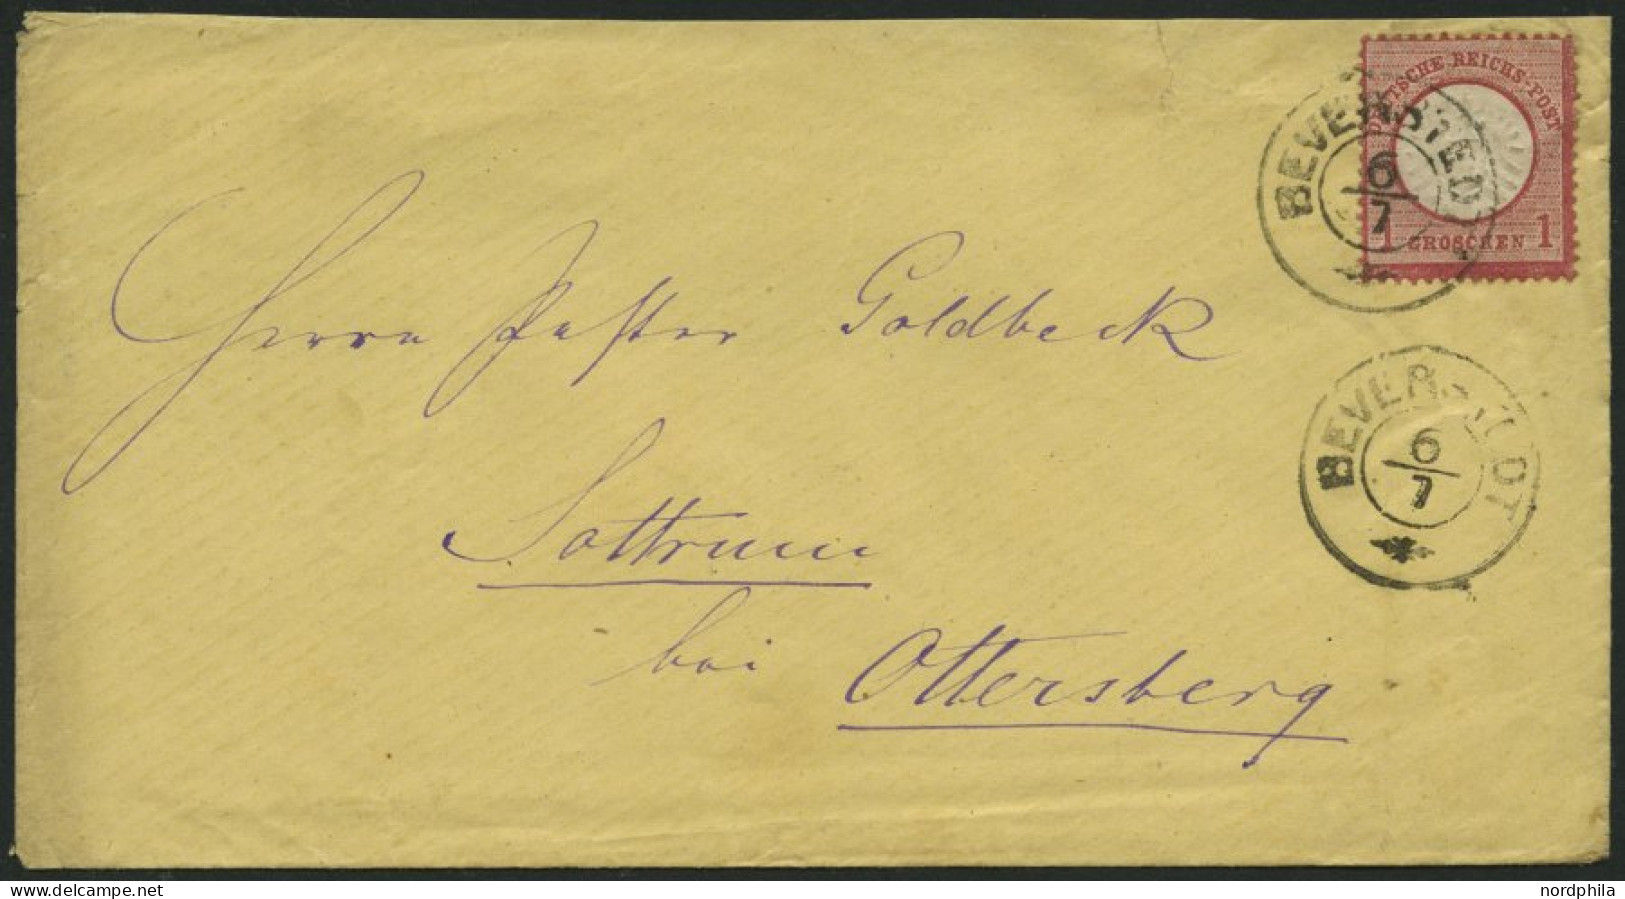 DEUTSCHE REICHS-POST
1 GROSCHEN 1
BEVERSTEDT
6/7
Herrn Pastor Goldbeck
BEVERSTEDT
6/7
Sottrum
bei
Ottersberg
www.delcampe.net
nordphila